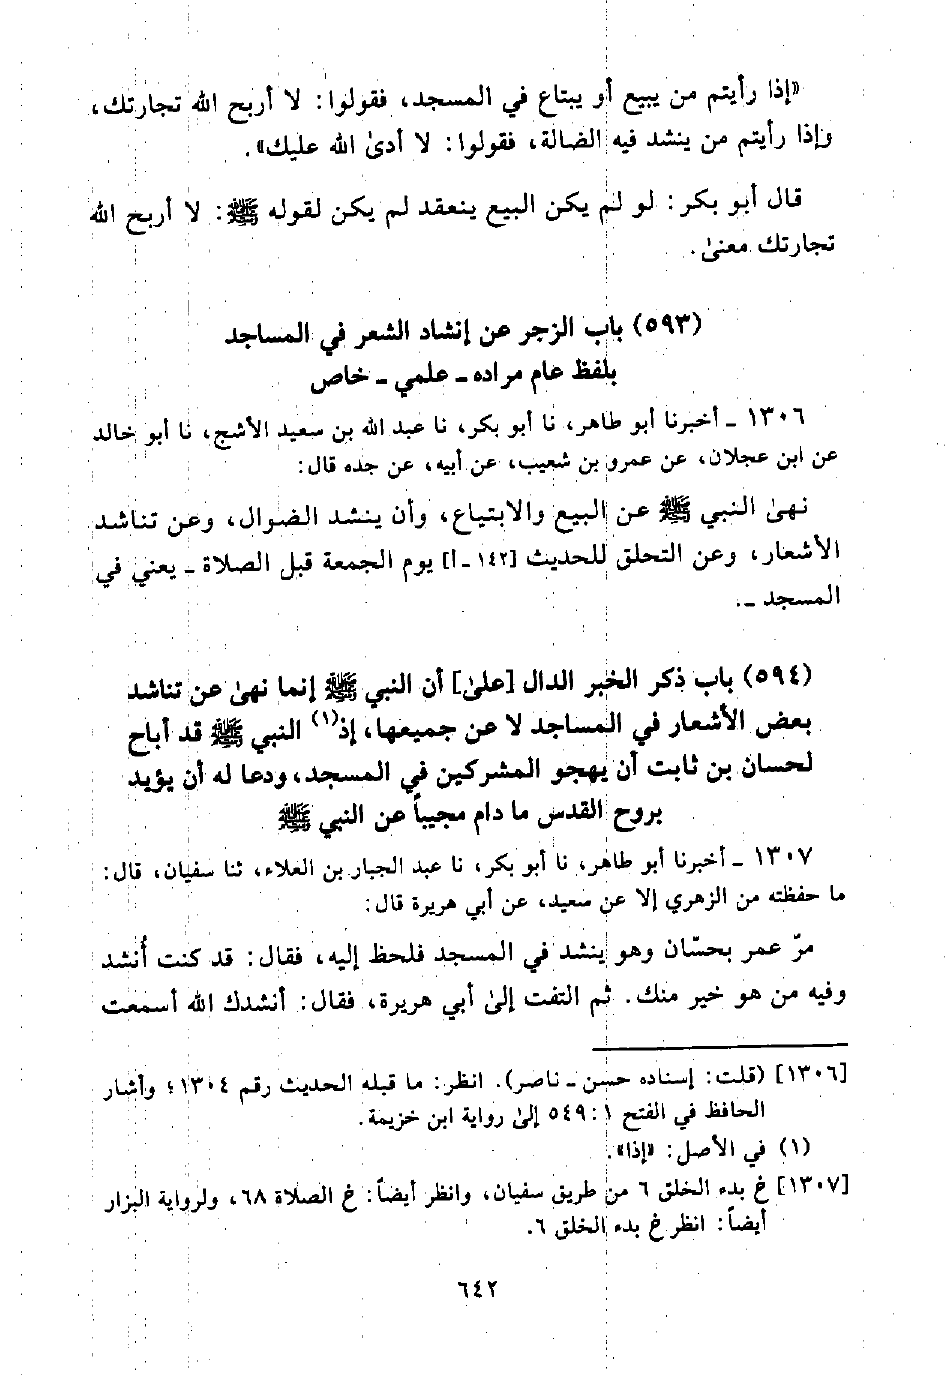 «إذا رأيتم من يبيع أو يبتاع في المسجد، فقولوا: لا أربح الله تجارتك،
وإذا رأيتم من ينشد فيه الضالة، فقولوا: لا أدىٰ الله عليك».
قال أبو بكر: لو لم يكن البيع ينعقد لم يكن لقوله ﷺ: لا أربح الله
تجارتك معنىٰ.
(٥٩٣) باب الزجر عن إنشاد الشعر في المساجد
بلفظ عام مراده - علمي - خاص
١٣٠٦ - أخبرنا أبو طاهر، نا أبو بكر، نا عبد الله بن سعيد الأشج، نا أبو خالد
عن ابن عجلان، عن عمرو بن شعيب، عن أبيه، عن جده قال:
نهىٰ النبي ﷺ عن البيع والابتياع، وأن ينشد الضوال، وعن تناشد
الأشعار، وعن التحلق للحديث [١٤٢ - أ] يوم الجمعة قبل الصلاة - يعني في
المسجد -.
(٥٩٤) باب ذكر الخبر الدال [علىٰ] أن النبي ﷺ إنما نهىٰ عن تناشد
بعض الأشعار في المساجد لا عن جميعها، إذ(١) النبي ﷺ قد أباح
لحسان بن ثابت أن يهجو المشركين في المسجد، ودعا له أن يؤيد
بروح القدس ما دام مجيباً عن النبي ﷺ
١٣٠٧ - أخبرنا أبو طاهر، نا أبو بكر، نا عبد الجبار بن العلاء، ثنا سفيان، قال:
ما حفظته من الزهري إلا عن سعيد، عن أبي هريرة قال:
مرّ عمر بحسّان وهو ينشد في المسجد فلحظ إليه، فقال: قد كنت أُنشد
وفيه من هو خير منك. ثم التفت إلىٰ أبي هريرة، فقال: أنشدك الله أسمعت
[١٣٠٦] (قلت: إسناده حسن - ناصر). انظر: ما قبله الحديث رقم ١٣٠٤؛ وأشار
الحافظ في الفتح ١: ٥٤٩ إلىٰ رواية ابن خزيمة.
(١) في الأصل: «إذا».
[١٣٠٧] خ بدء الخلق ٦ من طريق سفيان، وانظر أيضاً: خ الصلاة ٦٨، ولرواية البزار
أيضاً: انظر خ بدء الخلق ٦.
٦٤٢